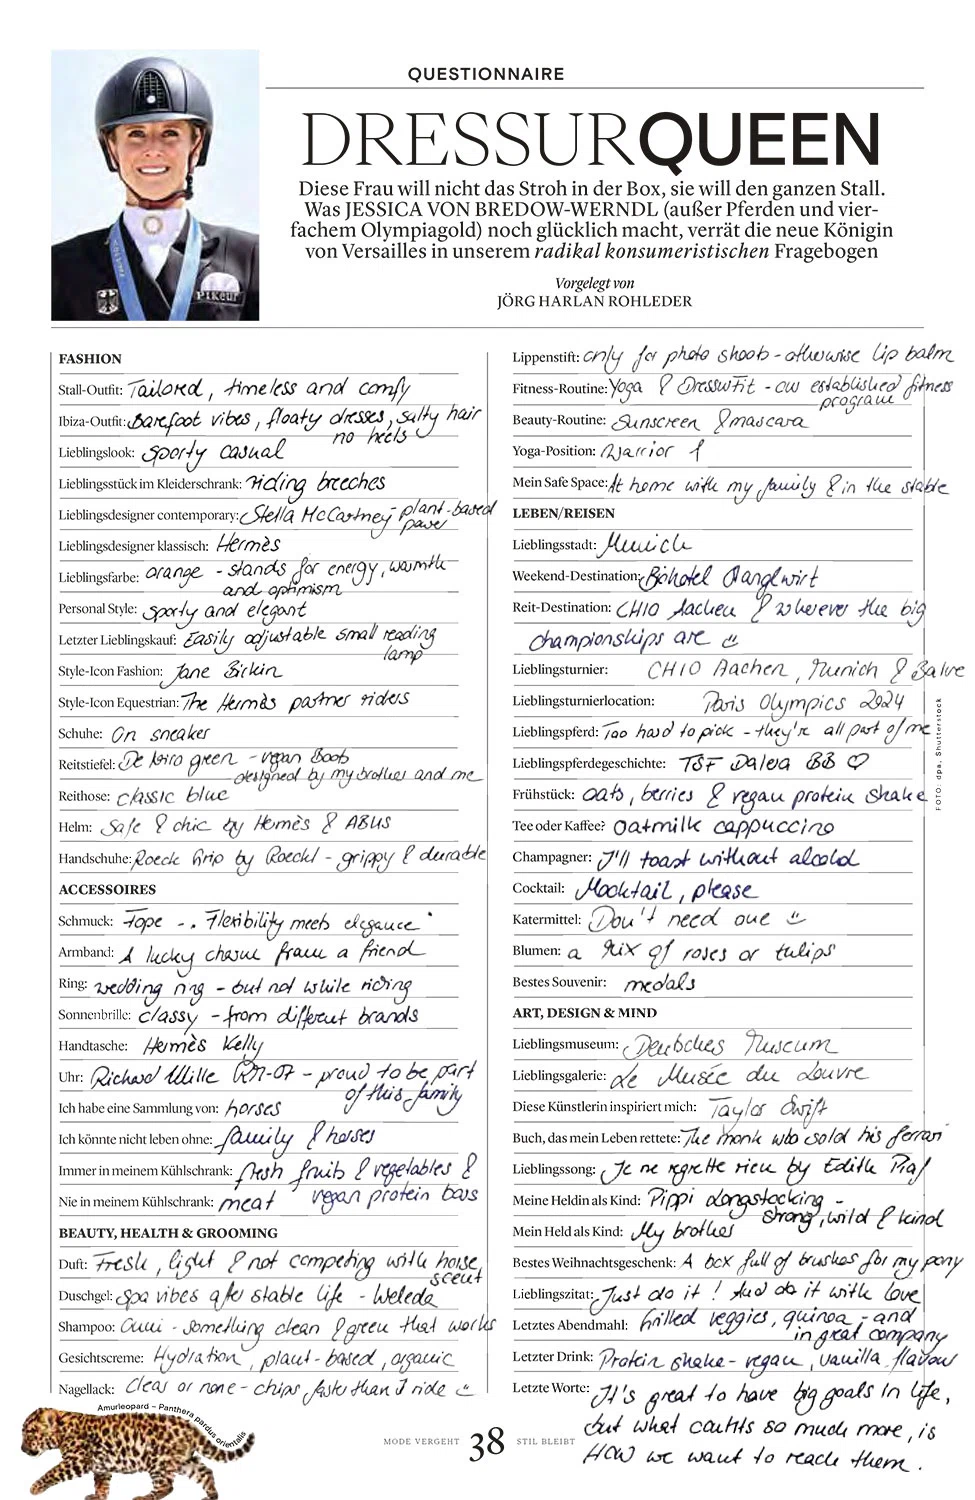 QUESTIONNAIRE
DRESSURQUEEN
Diese Frau will nicht das Stroh in der Box, sie will den ganzen Stall.
Was JESSICA VON BREDOW-WERNDL (außer Pferden und vier-
fachem Olympiagold) noch glücklich macht, verrät die neue Königin
von Versailles in unserem radikal konsumeristischen Fragebogen
Vorgelegt von
JÖRG HARLAN ROHLEDER
PIKEUR
FASHION
Stall-Outfit: Tailored, timeless and comfy
Ibiza-Outfit: Barefoot vibes, floaty dresses, salty hair
no heels
Lieblingslook: sporty casual
Lieblingsstück im Kleiderschrank: riding breeches
Lieblingsdesigner contemporary: Stella McCartney - plant-based
power
Lieblingsdesigner klassisch: Hermès
Lieblingsfarbe: orange - stands for energy, warmth
and optimism
Personal Style: sporty and elegant
Letzter Lieblingskauf: Easily adjustable small reading
lamp
Style-Icon Fashion: Jane Birkin
Style-Icon Equestrian: The Hermès partner riders
Schuhe: On sneaker
Reitstiefel: De Niro green - vegan Boots
designed by my brother and me
Reithose: classic blue
Helm: Safe & chic by Hermès & ABUS
Handschuhe: Roeck Grip by Roeckl - grippy & durable
ACCESSOIRES
Schmuck: Fope - .. Flexibility meets elegance"
Armband: A lucky charm from a friend
Ring: wedding ring - but not while riding
Sonnenbrille: classy - from different brands
Handtasche: Hermès Kelly
Uhr: Richard Mille RM-07 - proud to be part
of this family
Ich habe eine Sammlung von: horses
Ich könnte nicht leben ohne: family & horses
Immer in meinem Kühlschrank: fresh fruits & vegetables &
vegan protein bars
Nie in meinem Kühlschrank: meat
BEAUTY, HEALTH & GROOMING
Duft: Fresh, light & not competing with horse
scent
Duschgel: Spa vibes after stable life - Weleda
Shampoo: something clean & green that works
Gesichtscreme: Hydration, plant-based, organic
Nagellack: Clear or none - chips faster than I ride
Lippenstift: only for photo shoots - otherwise lip balm
Fitness-Routine: Yoga & DressurFit - our established fitness
programm
Beauty-Routine: Sunscreen & mascara
Yoga-Position: Warrior 1
Mein Safe Space: At home with my family & in the stable
LEBEN/REISEN
Lieblingsstadt: Munich
Weekend-Destination: Biohotel Stanglwirt
Reit-Destination: CHIO Aachen & wherever the big
championships are
Lieblingsturnier: CHIO Aachen, Munich & Balve
Lieblingsturnierlocation: Paris Olympics 2024
Lieblingspferd: Too hard to pick - they're all part of me
Lieblingspferdegeschichte: TSF Dalera BB ♡
Frühstück: Oats, berries & vegan protein shake
Tee oder Kaffee? Oatmilk cappuccino
Champagner: I'll toast without alcohol
Cocktail: Mocktail, please
Katermittel: Don't need one
Blumen: a mix of roses or tulips
Bestes Souvenir: medals
ART, DESIGN & MIND
Lieblingsmuseum: Deutsches Museum
Lieblingsgalerie: Le Musée du Louvre
Diese Künstlerin inspiriert mich: Taylor Swift
Buch, das mein Leben rettete: The monk who sold his ferrari
Lieblingssong: Je ne regrette rien by Edith Piaf
Meine Heldin als Kind: Pippi Longstocking -
strong, wild & kind
Mein Held als Kind: My brother
Bestes Weihnachtsgeschenk: A box full of brushes for my pony
Lieblingszitat: Just do it! And do it with love
Letztes Abendmahl: Grilled veggies, quinoa - and
in great company
Letzter Drink: Protein shake - vegan, vanilla flavour
Letzte Worte: It's great to have big goals in life,
but what counts so much more, is
HOW we want to reach them.
FOTO: dpa, Shutterstock
Amurleopard – Panthera pardus orientalis
MODE VERGEHT 38 STIL BLEIBT